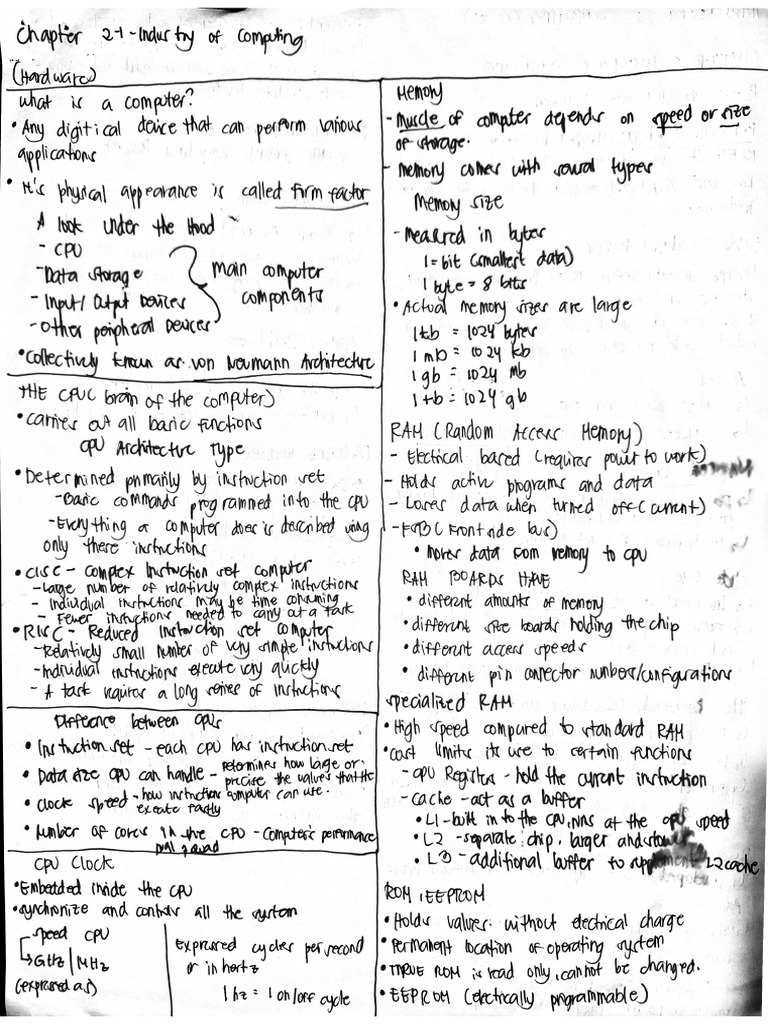 Chapter 2-1 - Industry of Computing
(Hardware)
What is a computer?
• Any digitical device that can perform various
applications
• It's physical appearance is called firm factor
A look under the Hood
- CPU
- Data Storage
- Input / Output Devices
- Other peripheral Devices
main computer
components
• Collectively known as von Neumann Architecture
THE CPU ( brain of the computer)
• carries out all basic functions
CPU Architecture Type
• Determined primarily by instruction set
- Basic commands programmed into the CPU
- Everything a computer does is described using
only these instructions
• CISC - Complex Instruction set computer
- Large number of relatively complex instructions
- Individual instructions may be time consuming
- Fewer instructions needed to carry out a task
• RISC - Reduced Instruction set Computer
- Relatively small number of very simple instructions
- Individual instructions execute very quickly
- A task requires a long series of instructions
Difference between CPUs
• Instruction set - each CPU has instruction set
• Data size CPU can handle - Determines how large or
precise the values that the
computer can use.
• Clock speed - how instruction
execute fastly
• Number of cores in the CPU - Computer's performance
CPU CLOCK
• Embedded inside the CPU
• synchronize and controls all the system
speed CPU
GHz / MHz
(expressed as)
Expressed cycles per second
or in hertz
1 hz = 1 on/off cycle
Memory
- Muscle of computer depends on speed or size
of storage.
- Memory comes with several types
Memory size
- Measured in bytes
1 = bit (smallest data)
1 byte = 8 bits
• Actual memory sizes are large
1 kb = 1024 bytes
1 mb = 1024 kb
1 gb = 1024 mb
1 tb = 1024 gb
RAM (Random Access Memory)
- Electrical based (requires power to work)
- Holds active programs and data
- Loses data when turned off (current)
- FSB ( Front side bus)
• moves data from memory to cpu
RAM BOARDS HAVE
• different amounts of memory
• different size boards holding the chip
• different access speeds
• different pin connector numbers/configurations
specialized RAM
• High speed compared to standard RAM
• Cost limits its use to certain functions
- CPU Register - hold the current instruction
- cache - act as a buffer
• L1 - built in to the CPU, runs at the cpu speed
• L2 - separate chip, larger and slower
• L3 - additional buffer to supplement L2 cache
ROM, EEPROM
• Holds values without electrical charge
• Permanent location of operating system
• TRUE ROM is read only, cannot be changed.
• EEPROM (electrically programmable)